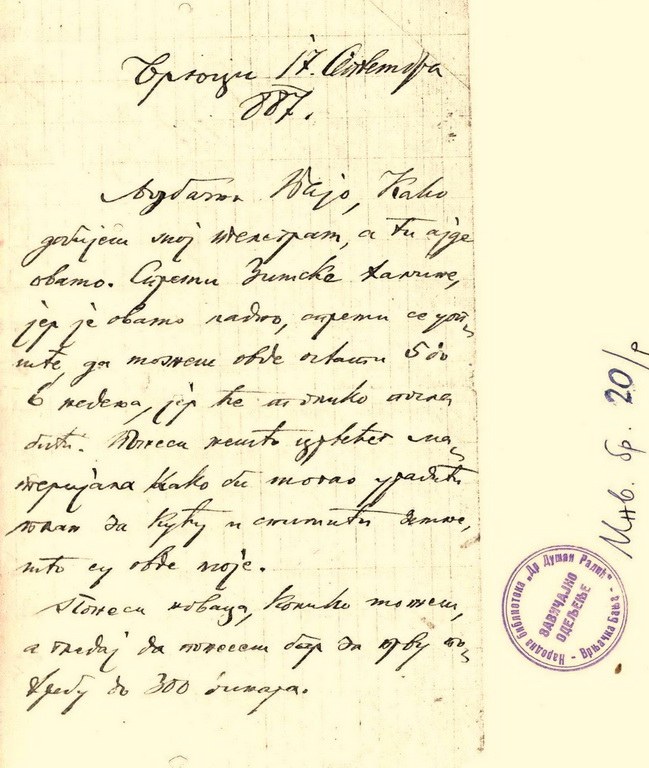 17. Септембра
887.
Пајо, Како
добијеш мој телеграм, а ти ајде
овамо. Спреми Зимске хаљине,
јер је овамо ладно, спреми се уоп„
ште, да можеш овде остати 5 до
6 недеља, јер ће толико посла
бити. Понеси нешто ма„
теријала како би могао урадити
план за кућу и снимити земље,
што су овде моје.
Понеси новаца, колико можеш,
а гледај да понесеш бар за прву по„
требу до 300 динара.
Инв. бр. 20/
Народна библиотека „Др Душан Радић“ - Врњачка Бања -
ЗАВИЧАЈНО
ОДЕЉЕЊЕ